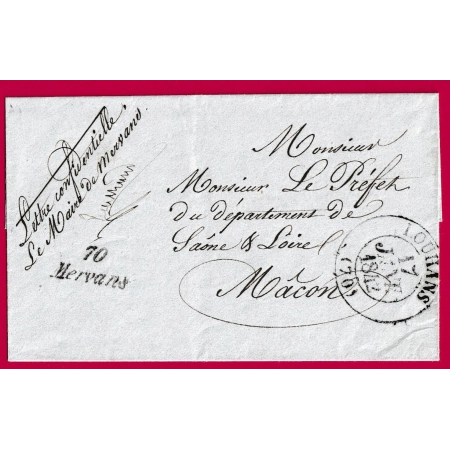 Lettre confidentielle
Le Maire de Mervans
70
Mervans
Monsieur
Monsieur Le Préfet
du département de
Saône & Loire
Mâcon
LOUHANS
17
JANV
1842
(70)